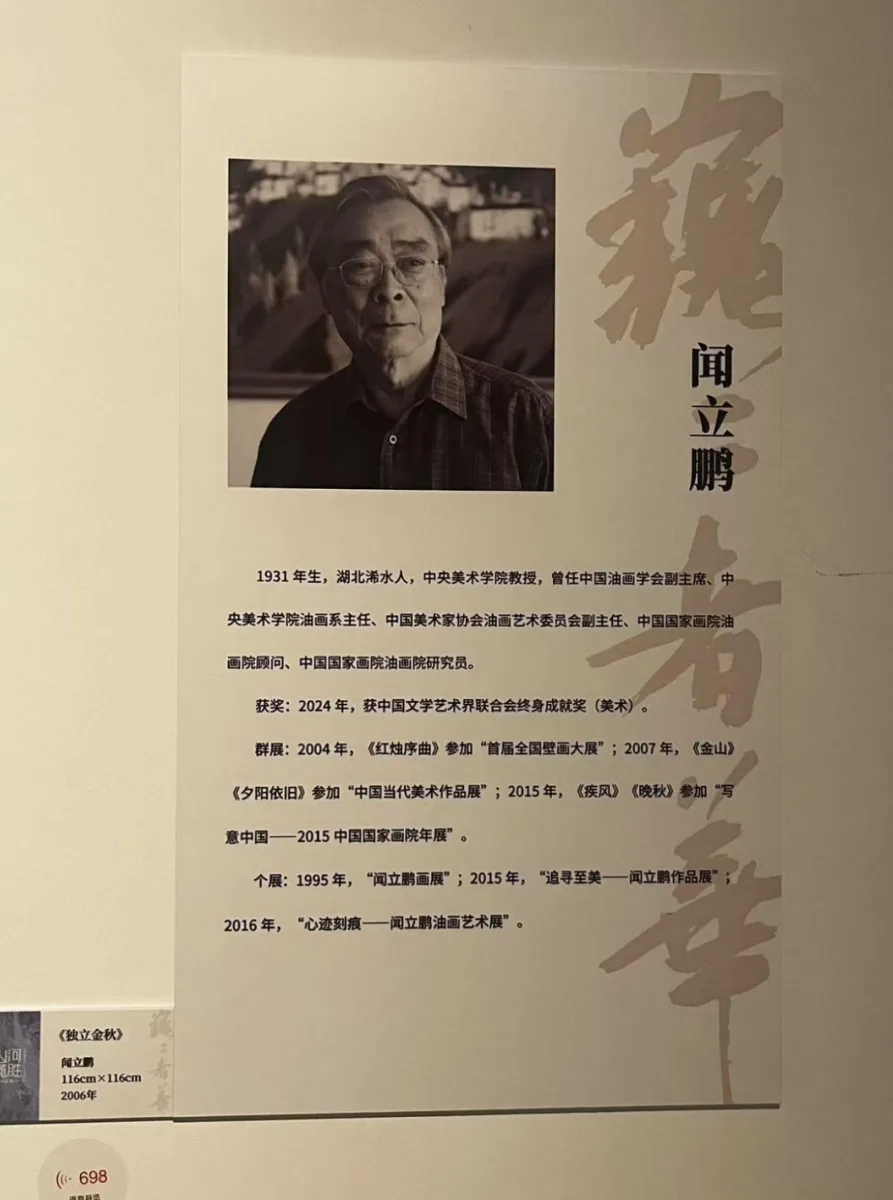 巍巍者華
闻立鹏
1931 年生，湖北浠水人，中央美术学院教授，曾任中国油画学会副主席、中
央美术学院油画系主任、中国美术家协会油画艺术委员会副主任、中国国家画院油
画院顾问、中国国家画院油画院研究员。
获奖：2024 年，获中国文学艺术界联合会终身成就奖（美术）。
群展：2004 年，《红烛序曲》参加“首届全国壁画大展”；2007 年，《金山》
《夕阳依旧》参加“中国当代美术作品展”；2015 年，《疾风》《晚秋》参加“写
意中国——2015 中国国家画院年展”。
个展：1995 年，“闻立鹏画展”；2015 年，“追寻至美——闻立鹏作品展”；
2016 年，“心迹刻痕——闻立鹏油画艺术展”。
《独立金秋》
闻立鹏
116cm×116cm
2006年
698